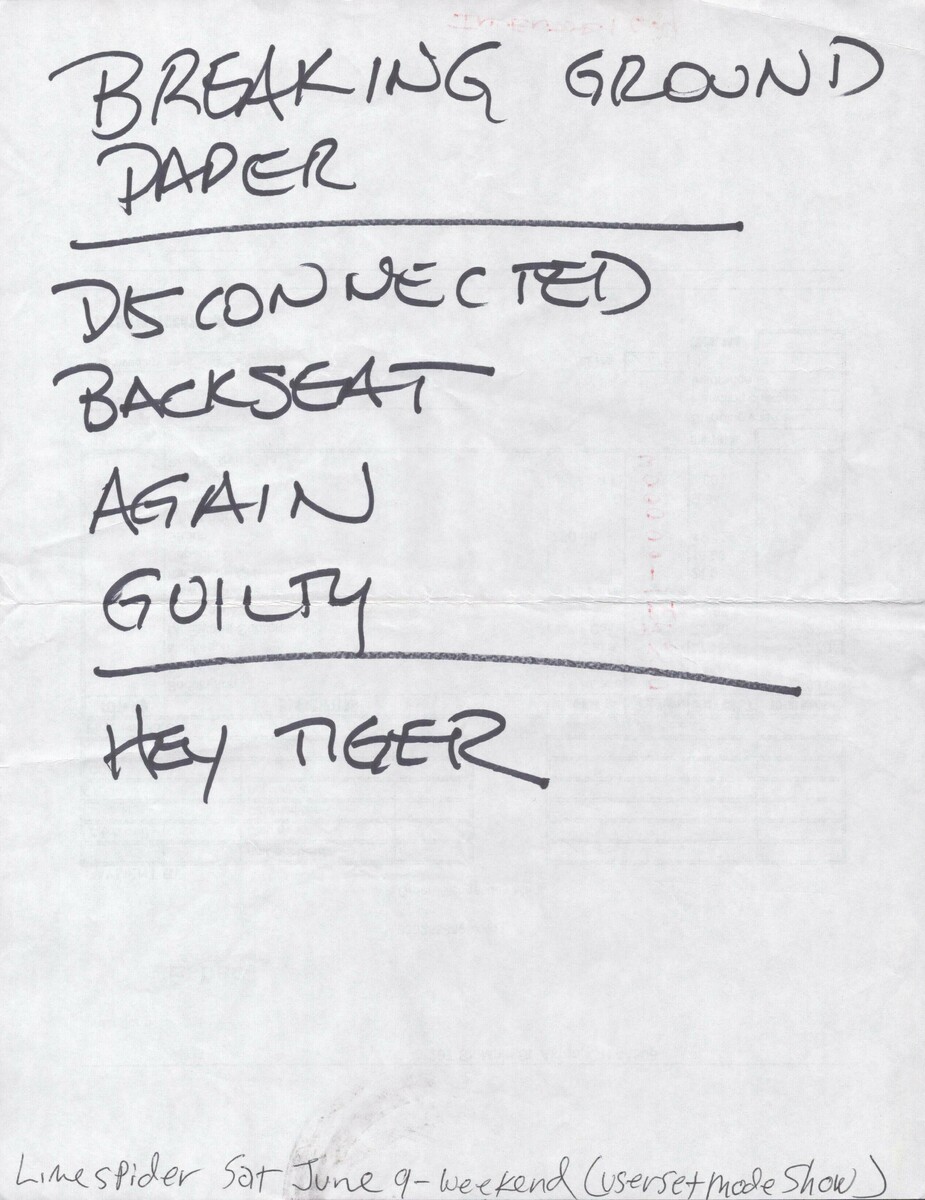 BREAKING GROUND
PAPER
DISCONNECTED
BACKSEAT
AGAIN
GUILTY
HEY TIGER
Limespider Sat June 9-weekend (usersetmode Show)